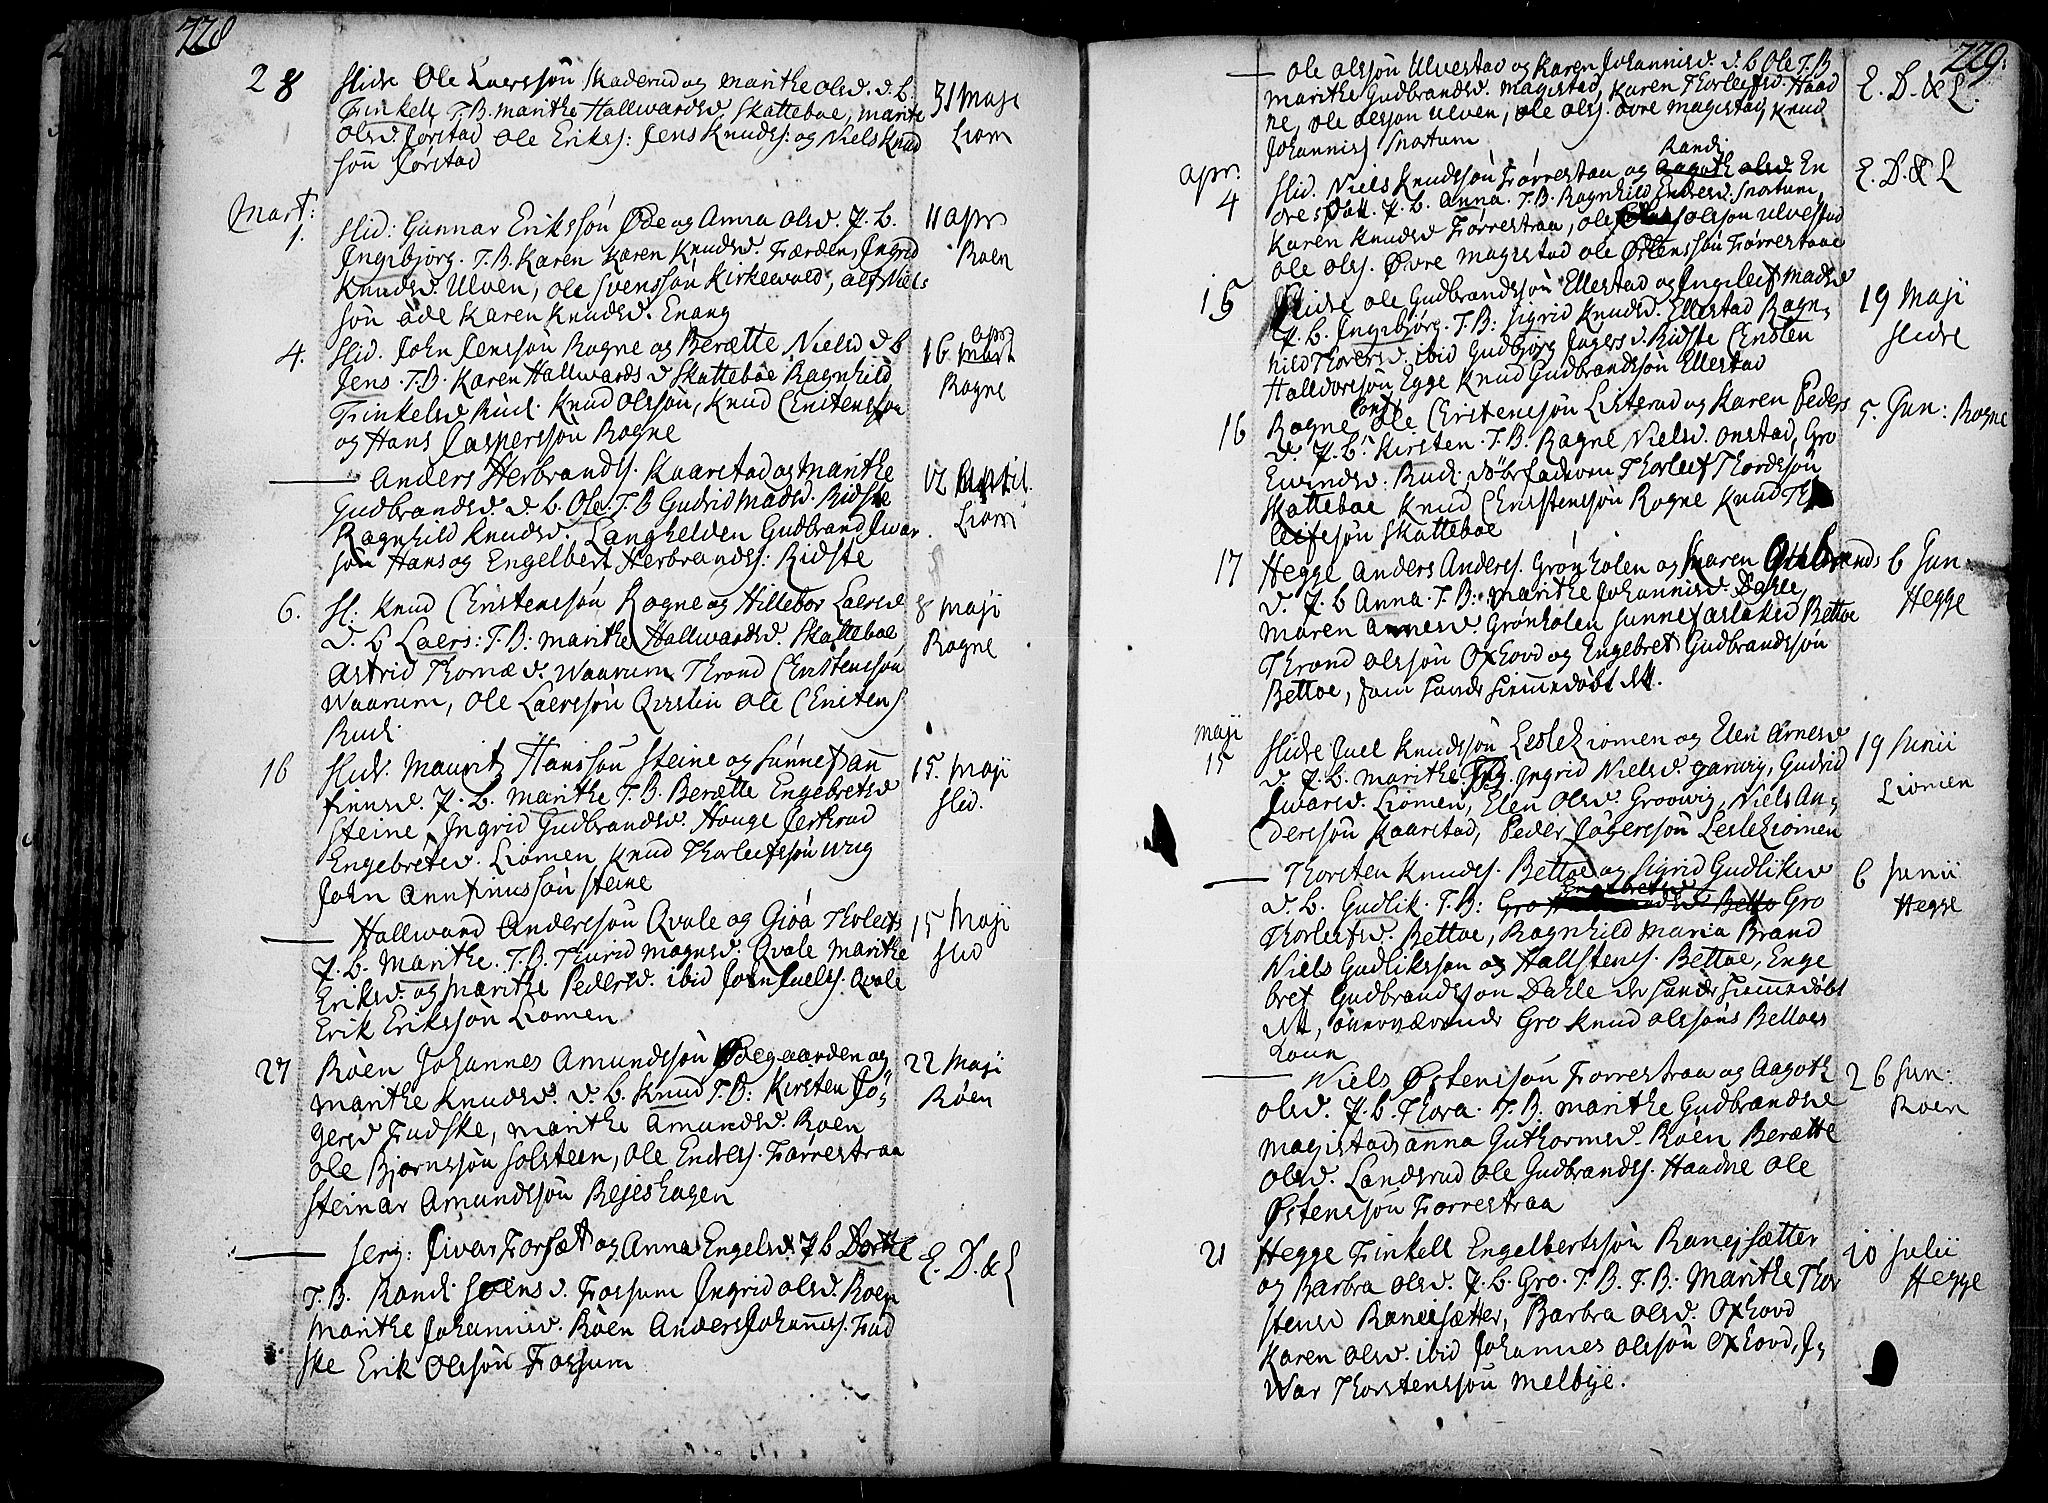 228
28 Slidre Ole Laerssøn Skaderud og Marithe Olsd. d. b.
Trinkell T.B. Marithe Hallwardsd. Skatteboe, Marite
Olsd. Jørstad Ole Eriks: Jens Knuds: og Niels Knud
søn Jørstad
31 Maji
Liom
Mart:
1. Slid: Gunnar Erikssøn Øde og Anna Olsd. P. b.
Ingibjørg. T.B. Karen Karen Knudsd. Færden, Ingrid
Knudsd. Ulven, Ole Svenssøn Kirkevold, Alf Niels
søn Øde Karen Knudsd. Enang
11 apr
Røen
4. Slid. John Jenssøn Rogne og Berætte Nielsd d b
Jens. T.B. Karen Hallwardsd Skatteboe Ragnhild
Trinkelsd Rudi Knud Olssøn, Knud Christenssøn
og Hans Casperssøn Rogne
16 apr
Rogne
— Anders Herbrands. Kaarstad og Marithe
Gudbrandsd. d. b. Ole. T.B Gudrid Madsd. Ridste
Ragnhild Knudsd. Langhelden Gudbrand Iwar
søn Hans og Engelbert Herbrands: Ridste
12 April.
Liom
6. Sl. Knud Christenssøn Rogne og Hillebor Laersd
d. b Laers: T.B: Marithe Hallwardsd. Skatteboe
Astrid Thomæd. Waarum Thrond Christenssøn
Waarum, Ole Laerssøn Qvislin Ole Christens
Rudi
8 Maji
Rogne
16 Slidr. Maurits Hanssøn Steine og Sunnef Ann
finnsd. P. b. Marithe T.B. Berætte Engebretsd
Steine, Ingrid Gudbrandsd. Houge Jertrud
Engebretsd. Liomen, Knud Thorleifssøn Wiig
John Annfinnssøn Steine
15. Maji
Slid.
— Hallward Anderssøn Qvale og Gióa Thorleifs
P. b. Marithe. T.B. Thurid Magnsd: Qvale Marithe
Eriksd. og Marithe Pedersd. ibid John Juels. Qvale
Erik Erikssøn Liomen
15 Maji
Slid
27 Røen Johannes Amundssøn Ødegaarden og
Marithe Knudsd. d. b. Knud T.B: Kirsten Jø-
gersd Fudske, Marithe Amundsd. Røen
Ole Bjørnssøn Holsteen, Ole Enders. Førrestraa
Steinar Amundssøn Rejeshagen
22 Maji
Røen
— Serg: Iwar Forsæt og Anna Engelsd. P b Dorthe
T.B. Randi Joensd. Fossum Ingrid Olsd. Roen
Marithe Johannisd. Røen Anders Johannes. Fud
ske Erik Olssøn Fossum
E. D. & L
229.
— Ole Olssøn Ulvestad og Karen Johannisd. d. b Ole T.B
Marithe Gudbrandsd. Magistad, Karen Thorleifsd. Haad
ne, Ole Olsson Ulven, Ole Ols. Øvre Magistad, Knud
Johannis Snortum
E. D. & L.
apr.
4 Slid. Niels Knudssøn Førrestraa og Aagoth Olsd Randi En
dresdatt. P. b. Anna. T.B. Ragnhild Endersd. Snortum,
Karen Knudsd Førrestraa, Ole Olssøn Ulvestad
Ole Ols. Øvre Magistad Ole Østenssøn Førrestraa
E. D. & L
15 Slidre Ole Gudbrandssøn Ellestad og Ingileif Madsd
P. b. Ingibjørg. T.B: Sigrid Knudsd. Ellestad Ragn-
hild Thorersd. ibid Gudbjørg Jøgersd. Ridste Christen
Halldorssøn Egge Knud Gudbrandssøn Ellestad
19 Maji
Slidre
16 Rogne Ole Christenssøn Listerud og Karen Peders
d. P. b: Kirsten. T.B. Ragne Nielsd. Onstad, Gro
Ewindsd: Rudi Thorleif Thordssøn
Skatteboe Knud Christenssøn Rogne Knud Th
leifssøn Skatteboe
5. Jun: Rogne
17 Hegge Anders Anders. Grønholen og Maren Gulbrands
d. P. b Anna. T.B: Marithe Johannisd. Dahle
Maren Arnesd. Grønholen Sunnef Aslaksd Bettoe
Thrond Olssøn Oxhovd og Engebret Gudbrandssøn
Bettoe, som havde hiemedøbt dtt.
6 Jun.
Hegge
Maji
15 Slidre Juel Knudssøn Lesleliomen og Eleri Arnesd
d. P. b. Marithe Ingrid Nielsd. Garvig, Gudrid
Iwarsd. Liomen, Eleri Olsd. Groovig, Niels An-
derssøn Kaarstad, Peder Jøgerssøn Lesleliomen
19 Junii
Liomen
— Thorsten Knuds. Bettoe og Sigrid Gudliksd
d. b. Gudlik. T.B: Gro Engebretsd Betto Gro
Thorleifsd. Bettoe, Ragnhild Maria Brand
Niels Gudlikssøn og Hallstens. Bettoe, Enge
bret Gudbrandssøn Dahle der havde hiemedøbt
dtt, overværende Gro Knud Olssøns Bettoes
Kone
6 Junii
Hegge
— Niels Østenssøn Førrestraa og Aagoth
Olsd. P. b. Thora. T.B. Marithe Gudbrandsd
Magistad, Anna Guthormsd. Røen Berætte
Olsd. Landsrud Ole Gudbrands. Haadne Ole
Østenssøn Førrestraa
26 Jun:
Røen
21 Hegge Trinkell Engelbertssøn Raneisætter
og Barbra Olsd. P. b. Gro. T.B. T.B: Marithe Thor
stensd Raneisætter, Barbra Olsd. Oxhovd
Karen Olsd. ibid Johannes Olssøn Oxhovd, I-
war Thorstenssøn Melbye.
10 Julii
Hegge